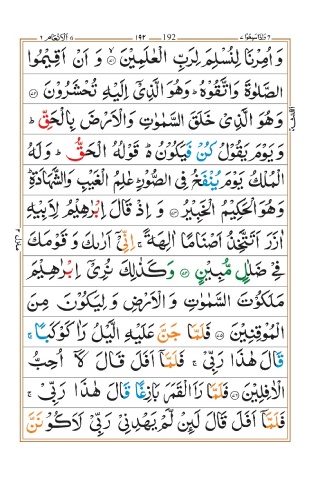 وَاِذَا سَمِعُوْا ٧ 192 ١٩٢ اَلْاَنْعَام ٦
وَ اُمِرْنَا لِنُسْلِمَ لِرَبِّ الْعٰلَمِيْنَ ۙ﴿٧١﴾ وَ اَنْ اَقِيْمُوا
الصَّلٰوةَ وَاتَّقُوْهُ ؕ وَهُوَ الَّذِيْۤ اِلَيْهِ تُحْشَرُوْنَ ﴿٧٢﴾
وَهُوَ الَّذِيْ خَلَقَ السَّمٰوٰتِ وَالْاَرْضَ بِالْحَقِّ ؕ
وَ يَوْمَ يَقُوْلُ كُنْ فَيَكُوْنُ ۬ؕ قَوْلُهُ الْحَقُّ ؕ وَلَهُ
الْمُلْكُ يَوْمَ يُنْفَخُ فِي الصُّوْرِ ؕ عٰلِمُ الْغَيْبِ وَالشَّهَادَةِ ؕ
وَهُوَ الْحَكِيْمُ الْخَبِيْرُ ﴿٧٣﴾ وَ اِذْ قَالَ اِبْرٰهِيْمُ لِاَبِيْهِ
اٰزَرَ اَتَتَّخِذُ اَصْنَامًا اٰلِهَةً ۚ اِنِّيْۤ اَرٰىكَ وَ قَوْمَكَ
فِيْ ضَلٰلٍ مُّبِيْنٍ ﴿٧٤﴾ وَ كَذٰلِكَ نُرِيْۤ اِبْرٰهِيْمَ
مَلَكُوْتَ السَّمٰوٰتِ وَ الْاَرْضِ وَ لِيَكُوْنَ مِنَ
الْمُوْقِنِيْنَ ﴿٧٥﴾ فَلَمَّا جَنَّ عَلَيْهِ الَّيْلُ رَاٰ كَوْكَبًا ۚ
قَالَ هٰذَا رَبِّيْ ۚ فَلَمَّاۤ اَفَلَ قَالَ لَاۤ اُحِبُّ
الْاٰفِلِيْنَ ﴿٧٦﴾ فَلَمَّا رَاَ الْقَمَرَ بَازِغًا قَالَ هٰذَا رَبِّيْ ۚ
فَلَمَّاۤ اَفَلَ قَالَ لَئِنْ لَّمْ يَهْدِنِيْ رَبِّيْ لَاَكُوْنَنَّ